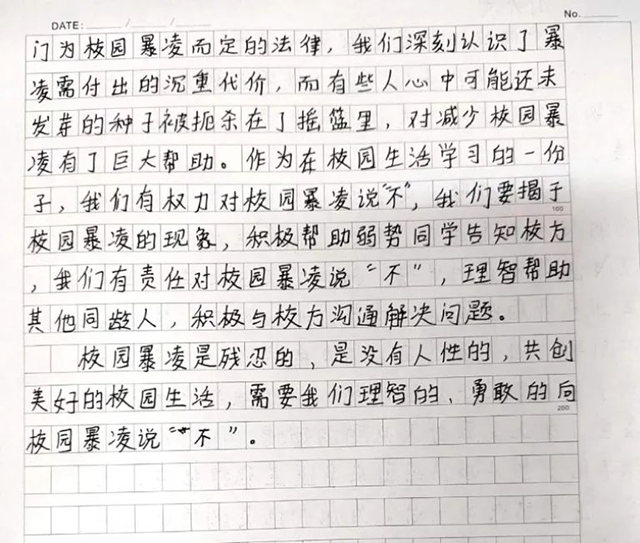 DATE: / /
No.
门为校园暴凌而定的法律，我们深刻认识了暴
凌需付出的沉重代价，而有些人心中可能还未
发芽的种子被扼杀在了摇篮里，对减少校园暴
凌有了巨大帮助。作为在校园生活学习的一份
子，我们有权力对校园暴凌说“不”，我们要揭于
100
校园暴凌的现象，积极帮助弱势同学告知校方
，我们有责任对校园暴凌说“不”，理智帮助
其他同龄人，积极与校方沟通解决问题。
校园暴凌是残忍的、是没有人性的，共创
美好的校园生活，需要我们理智的、勇敢的向
200
校园暴凌说“不”。